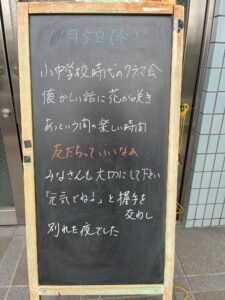 11月5日(水)
小中学校時代のクラス会
懐かしい話に花が咲き
あっという間の楽しい時間
友だちっていいなあ
みなさんも大切にして下さい
「元気でね!」と握手を
交わし
別れた夜でした